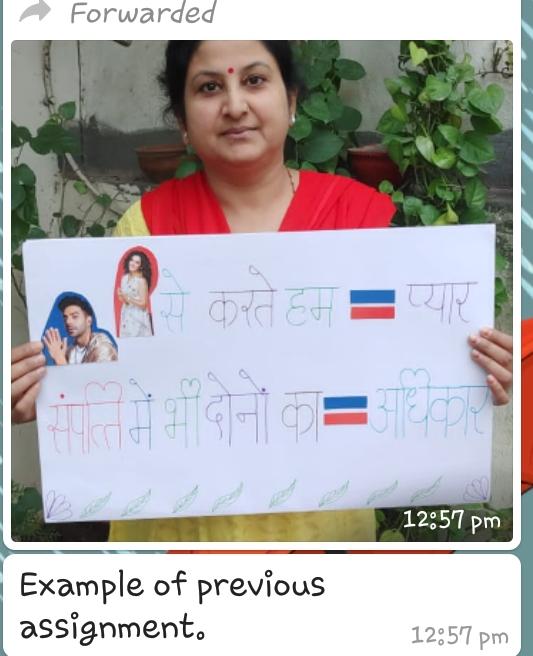 Forwarded
से करते हम = प्यार
संपत्ति में भी दोनों का = अधिकार
12:57 pm
Example of previous
assignment.
12:57 pm